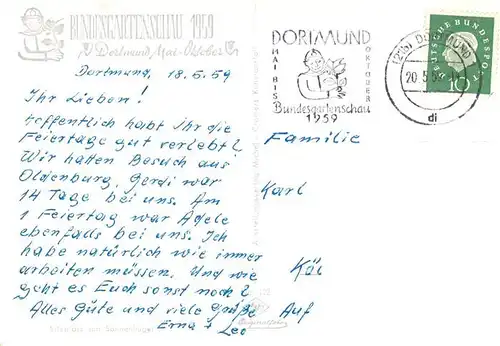 BUNDESGARTENSCHAU 1959
Dortmund Mai-Oktober
Dortmund, 18.5.59
Ihr Lieben!
Hoffentlich habt Ihr die
Feiertage gut verlebt?
Wir hatten Besuch aus
Oldenburg, Gerdi war
14 Tage bei uns. Am
1 Feiertag war Adele
ebenfalls bei uns. Ich
habe natürlich wie immer
arbeiten müssen. Und wie
geht es Euch sonst noch?
Alles Gute und viele Grüße
Erna + Leo
DORTMUND
MAI BIS
OKTOBER
Bundesgartenschau
1959
DORTMUND
20.5.59
di
DEUTSCHE BUNDESPOST
10
Familie
Karl
Auf